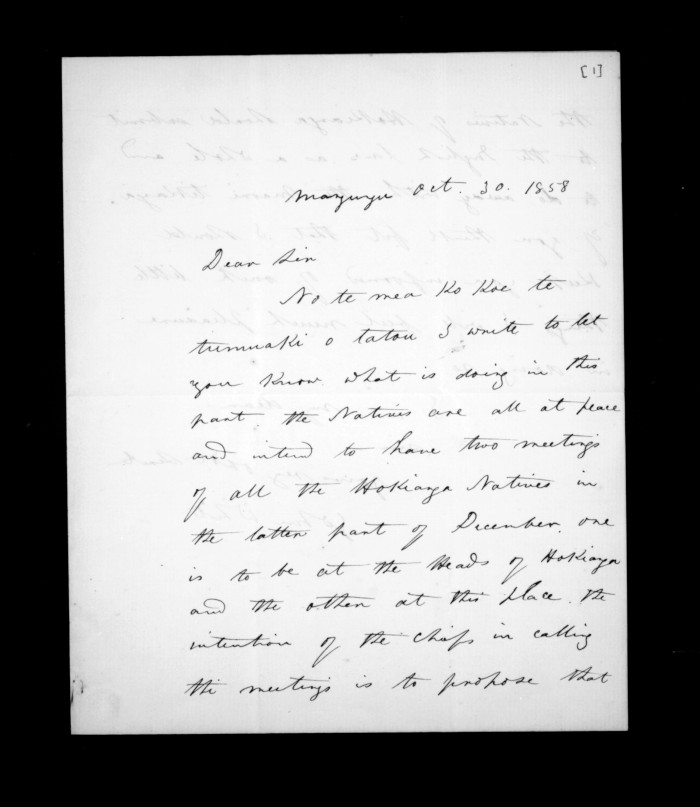 [1]
Mangungu Oct. 30. 1858
Dear Sir
No te mea Ko Koe te
tumuaki o tatou I write to let
you know what is doing in this
part the Natives are all at peace
and intend to have two meetings
of all the Hokianga Natives in
the latter part of December, one
is to be at the Heads of Hokianga
and the other at this place. the
intention of the chiefs in calling
the meetings is to propose that